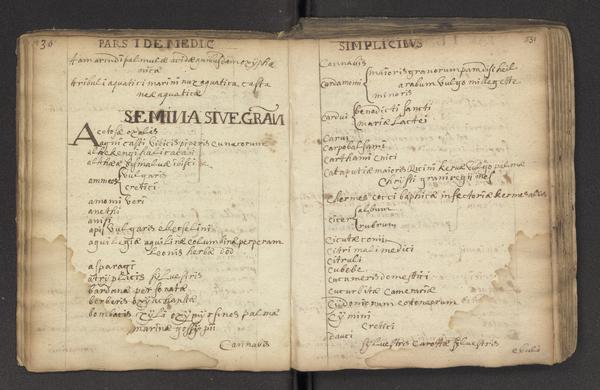 30 PARS I DE MEDIC
tamarindi palmulæ acidæ
tribuli aquatici marini nux aquatica casta
neæ aquaticæ
SEMINA SIVE GRANA
Acetosæ oxalis
agni casti viticis piperis eunucorum
alkekengi halicacabi
altheæ bismalvæ ibisci
ammeos vulgaris
cretici
amomi veri
anethi
anisi
apii vulgaris eleoselini
aquilegiæ aquilinæ columbinæ perperam
Leonis herbæ dod
asparagi
atriplicis sylvestris
bardanæ personatæ
berberis oxyacanthæ
bombacis xyli
marinæ gossypii
Cannavis
SIMPLICIBUS 31
Cannavis
Cardamomi maioris granorum paradisi
arabum vulgo millegette
minoris
Cardui benedicti sancti
mariæ Lactei
Carui
Carpobalsami
Carthami cnici
Cataputiæ maioris Ricini kervæ vulgo palmæ
Christi grani regii mes
chermes cocci baphicæ infectoriæ kermes
ciceris album
rubrum
Cicutæ conii
Citri mali medici
Citruli
Cubebe
Cucumeris domestici
Cucurbitæ Camerariæ
Cydoniorum cotoneorum
Cymini
Cretici
Dauci
sylvestris Carottæ sylvestris